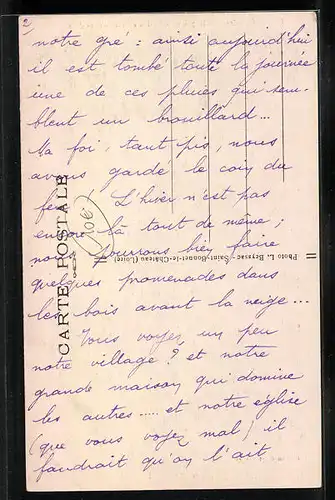 2
notre gré : ainsi aujourd'hui
il est tombé toute la journée
une de ces pluies qui sem-
blent un brouillard...
Ma foi, tant pis, nous
avons gardé le coin du
feu! L'hiver n'est pas
encore là tout de même ;
nous pourrons bien faire
quelques promenades dans
les bois avant la neige...
Vous voyez un peu
notre village? et notre
grande maison qui domine
les autres..... et notre église
(que vous voyez mal) il
faudrait qu'on l'ait
CARTE POSTALE
10€
Photo L. Beyssac - Saint-Bonnet-le-Château (Loire)